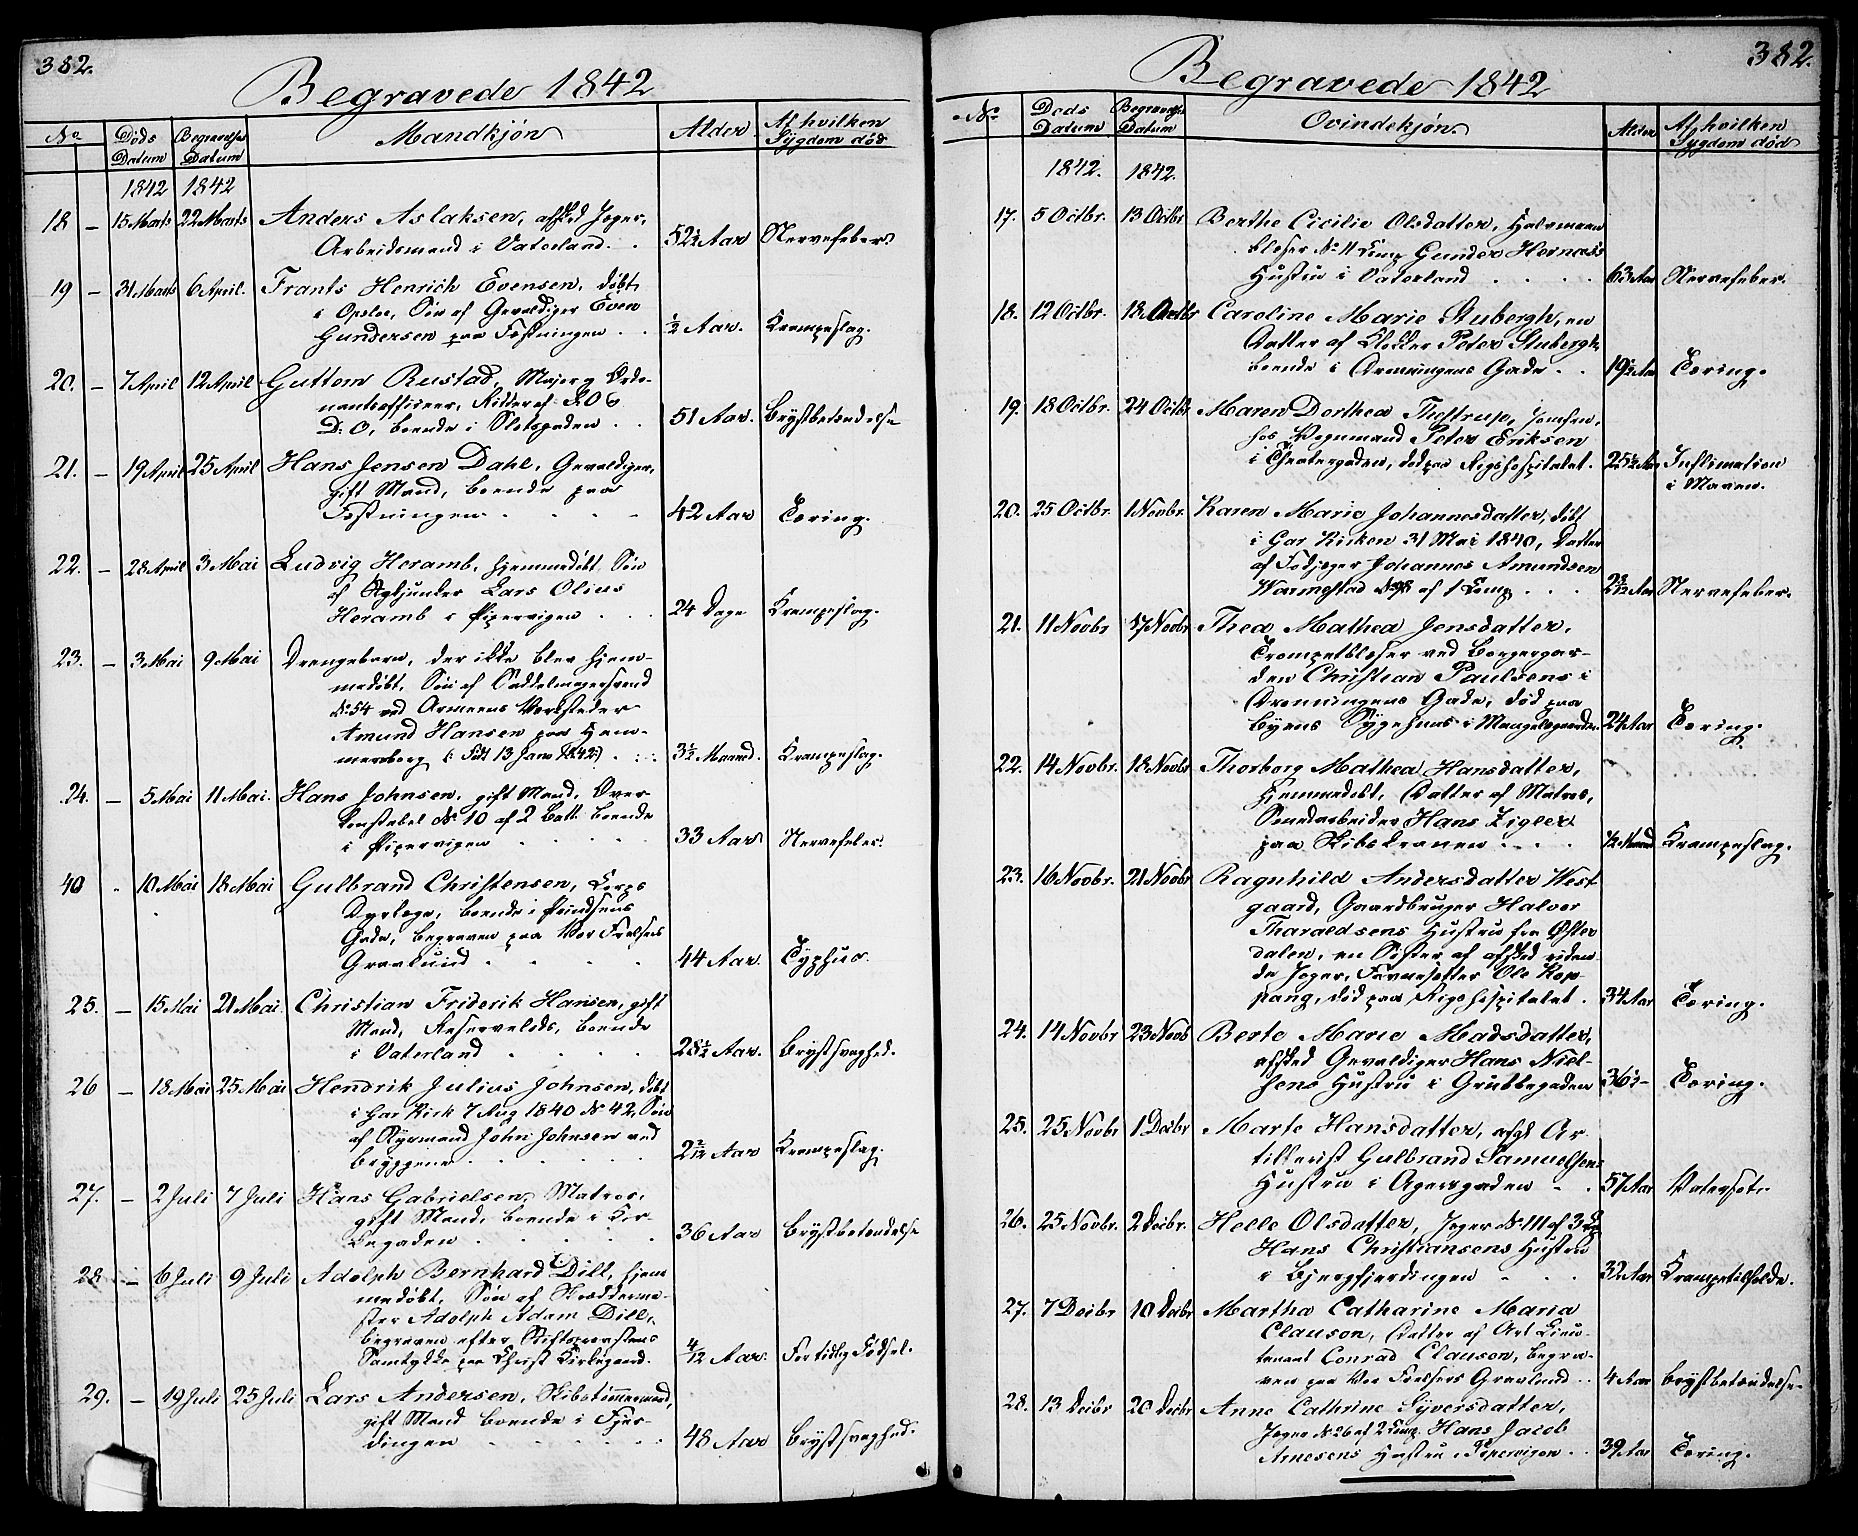 382.
Begravede 1842
No Døds Datum Begravelses Datum Mandkjøn Alder Af hvilken Sygdom død
1842 1842
18 – 15 Marts 22 Marts Anders Aslaksen, afsked Jæger,
Arbeidsmand i Vaterland. . 52½ Aar Nervefeber.
19 – 31 Marts 6 April. Frants Henrich Evensen, døbt
i Opsloe, Søn af Gevaldiger Even
Gundersen paa Fæstningen . . ½ Aar. Krampeslag.
20. – 7 April 12 April Guttorm Rustad, Major og Ordo-
nantsofficeer, Ridder af
D: O, boende i Slotsgaden . . 51 Aar. Brystbetændelse
21. – 19 April 25 April Hans Jensen Dahl, Gevaldiger,
gift Mand, boende paa
Fæstningen . . . 42 Aar Tæring.
22. – 28 April 3 Mai Ludvig Heramb, hjemmedøbt Søn
af Lars Olius
Heramb i Pipervigen . . . 24 Dage Krampeslag.
23. – 3 Mai 9 Mai Drengebarn, der ikke blev hjem-
medøbt, Søn af Saddelmagersvend
No 54 ved Armeens Værksteder
Amund Hansen paa Ham-
mersborg (: Født 13 Janr 1842 :) . 3½ Maaned. Krampeslag.
24. – 5 Mai 11 Mai. Hans Johnsen, gift Mand, Over
Konstabel No 10 af 2 Batt: boende
i Pipervigen . . . 33 Aar Nervefeber.
40 . 10 Mai 18 Mai Gulbrand Christensen, Corps
Dyrlæge, boende i Prindsens
Gade, begraven paa Vor Frelsers
Gravlund . . . 44 Aar. Typhus.
25. – 15 Mai 21 Mai. Christian Friderik Hansen, gift
Mand, boende
i Vaterland . . . 28½ Aar. Brystsvaghed.
26 – 18 Mai 25 Mai Hendrik Julius Johnsen, døbt
i Gar Kirk 7 Aug 1840 No 42, Søn
af Ryemand John Johnsen ved
Bryggene . . . Aar Krampeslag.
27. – 2 Juli 7 Juli Hans Gabrielsen, Matros,
gift Mand, boende i Tor-
begaden . . . 36 Aar Brystbetændelse
28 – 6 Juli 9 Juli Adolph Bernhard Dill, hjem
medøbt, Søn af Skrædderme-
ster Adolph Adam Dill,
begraven efter Stiftsprovstens
Samtykke paa Christ Kirkegaard. 4/12 Aar. For tidlig Fødsel.
29. – 19 Juli 25 Juli Lars Andersen, Skibstømmermand,
gift Mand boende i Fjer-
dingen . . . 48 Aar Brystsvaghed.
382.
Begravede 1842
No Døds Datum Begravelses Datum Qvindekjøn. Alder Af hvilken Sygdom død
1842. 1842.
17. 5 Octbr. 13 Octbr Berthe Cicilie Olsdatter, Halvmaane
blæser No 11 Comp Gunder Hornæs's
Hustru i Vaterland . . . 63 Aar Nervefeber.
18. 12 Octbr. 18 Octbr Caroline Marie Stubergh, en
Datter af Klokker Peter Stubergh
boende i Dronningens Gade . . 19½ Aar Tæring.
19. 18 Octbr. 24 Octbr. Maren Dorthea Theltrup, Jomfru,
hos Vognmand Peter Eriksen
i Theatergaden, død paa Rigshospitalet. 25½ Aar Inflimation
i Maven.
20. 25 Octbr. 1 Novbr. Karen Marie Johannesdatter, døbt
i Gar Kirken 31 Mai 1840, Datter
af Fodjæger Johannes Amundsen
Warmestad af 1 Comp . . . Aar Nervefeber.
21. 11 Novbr 17 Novbr Thea Mathea Jensdatter,
Trompetblæser ved Borgergar-
den Christian Paulsens i
Dronningens Gade, død paa
Byens Sygehuus i Mangelsgaarden. 24 Aar Tæring.
22. 14 Novbr. 18 Novbr Thorborg Mathea Hansdatter,
hjemmedøbt, Datter af Matros,
Hans Zigler
paa Skibskranen . . . ½ Maaned Krampeslag.
23. 16 Novbr. 21 Novbr Ragnhild Andersdatter West
gaard, Gaardbruger Halvor
Tharaldsens Hustru fra Øster
dalen, en Søster af afsked riden
de Jæger, Ole Kop
pang, død paa Rigshospitalet . 34 Aar Tæring.
24. 14 Novbr 23 Novb Berte Marie Madsdatter,
afsked Gevaldiger Hans Niel-
sens Hustru i Grubbegaden 36½ – Tæring.
25. 25 Novbr 1 Decbr Marte Hansdatter, afsk Ar
tillerist Gulbrand Samuelsens
Hustru i Agersgaden – . 57 Aar Vatersot.
26. 25 Novbr. 2 Decbr. Helle Olsdatter, Jæger No 111 af 3 Cp
Hans Christiansens Hustru
i Bjergfjerdingen . . . 32 Aar Krampetilfælde.
27. 7 Decbr 10 Decbr Martha Catharine Maria
Clauson, Datter af Art Lieu-
tenant Conrad Clauson, begra-
ven paa Vor Frelsers Gravlund . . 4 Aar Brystbetændelse.
28. 13 Decbr 20 Decbr Anne Cathrine Syversdatter,
Jæger No 26 af 2 Comp. Hans Jacob
Arnesens Hustru i Pipervigen . . 39 Aar Tæring.